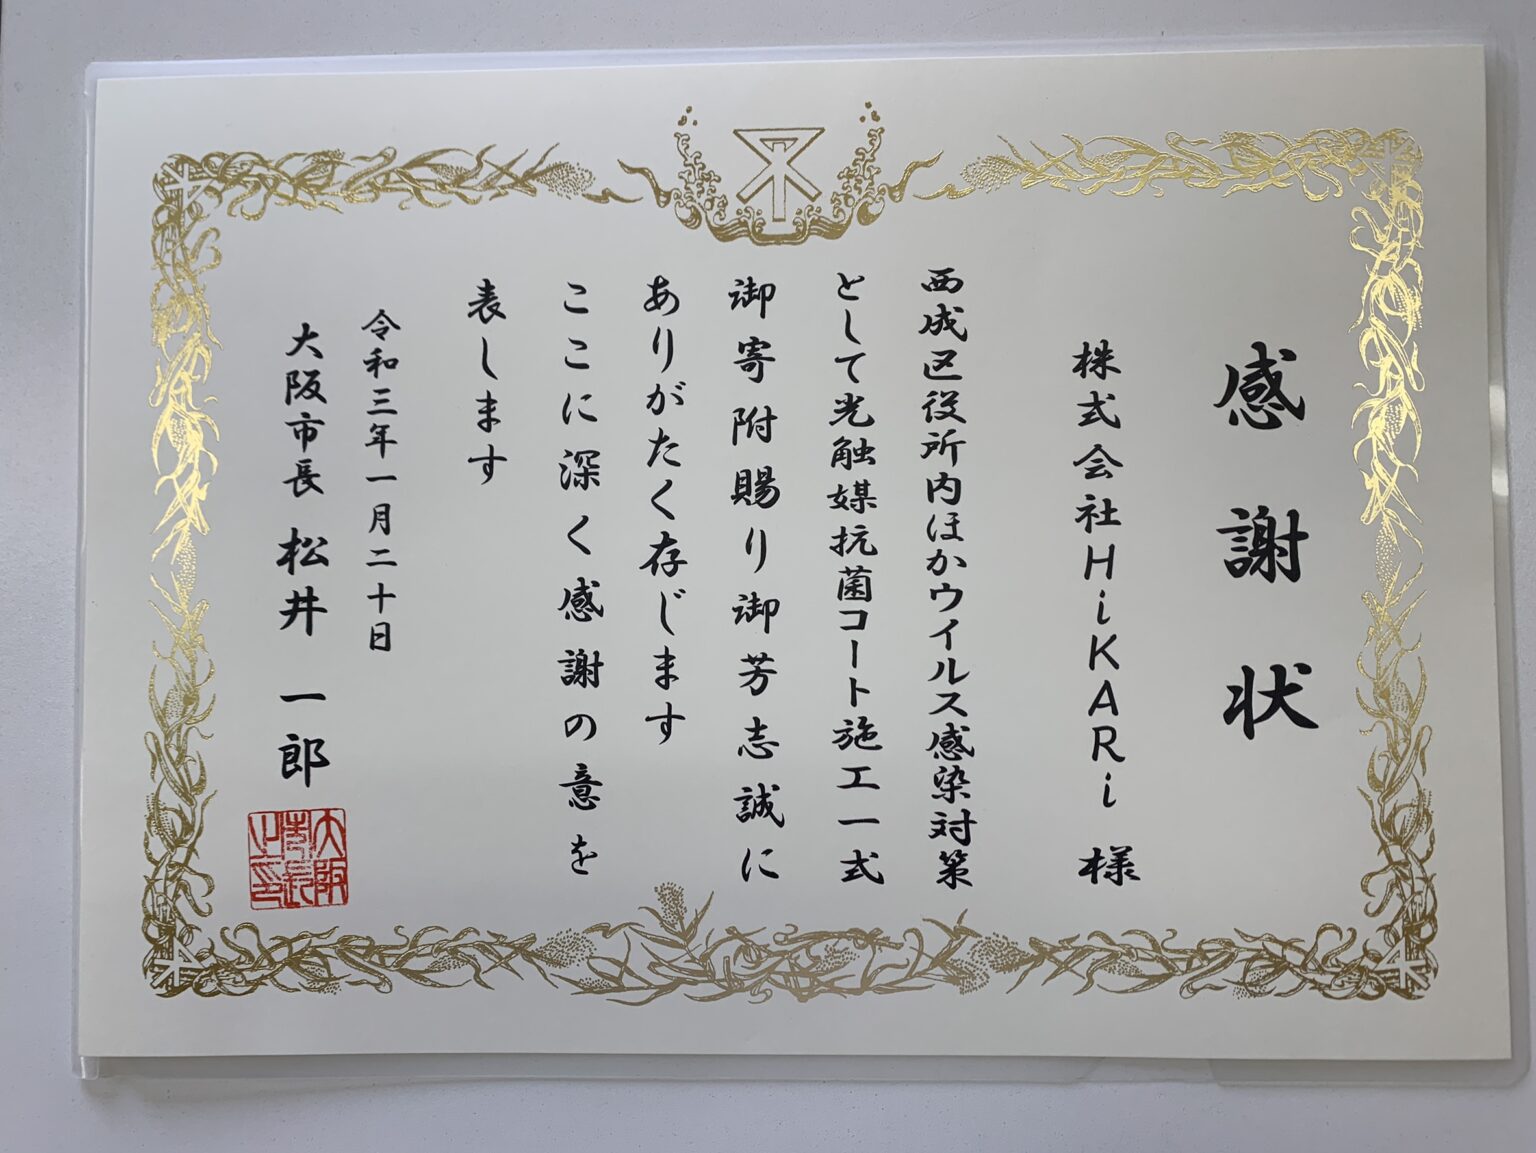 感謝状
株式会社HiKARi 様
西成区役所内ほかウイルス感染対策
として光触媒抗菌コート施工一式
御寄附賜り御芳志誠に
ありがたく存じます
ここに深く感謝の意を
表します
令和三年一月二十日
大阪市長 松井 一郎
大阪
市長
之印